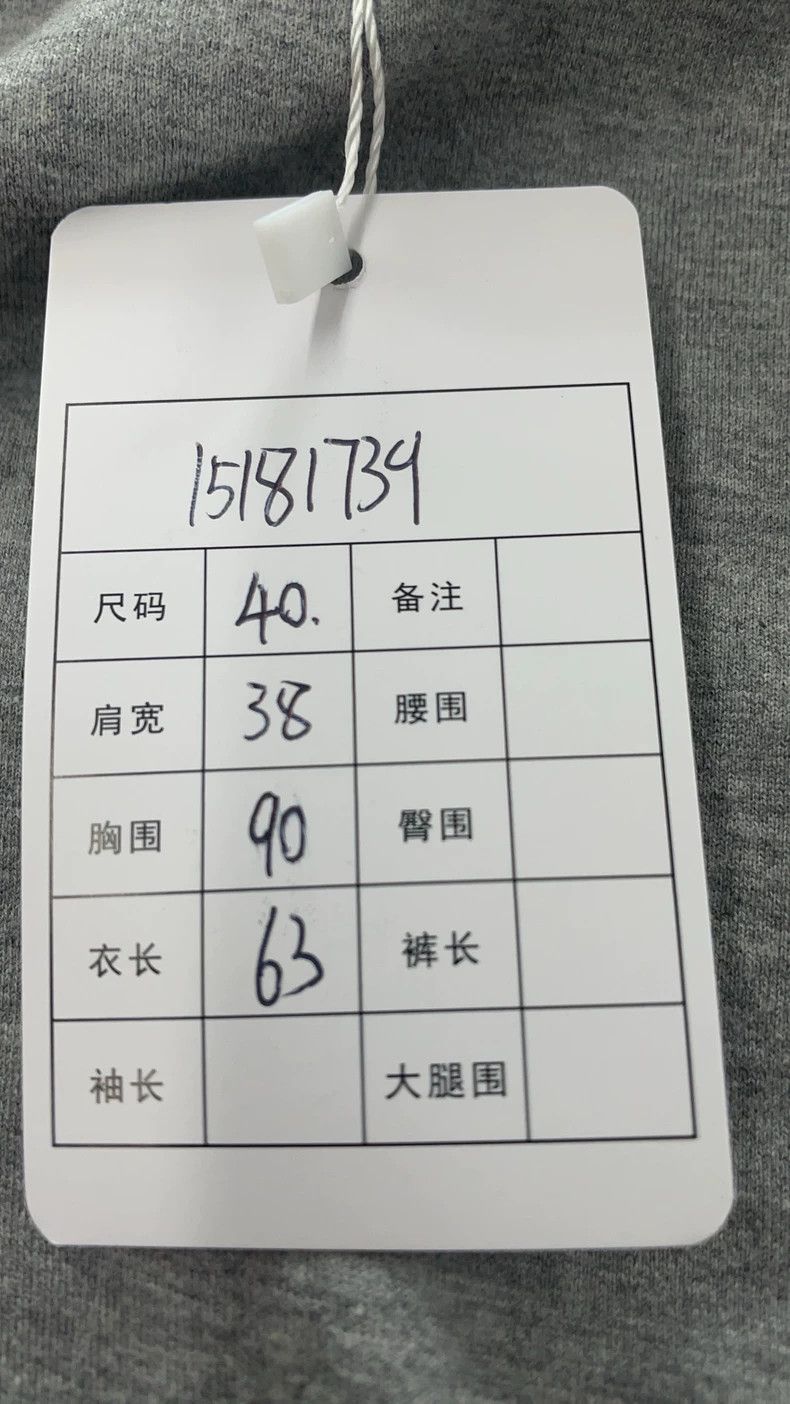 15181739
尺码 40. 备注
肩宽 38 腰围
胸围 90 臀围
衣长 63 裤长
袖长 大腿围